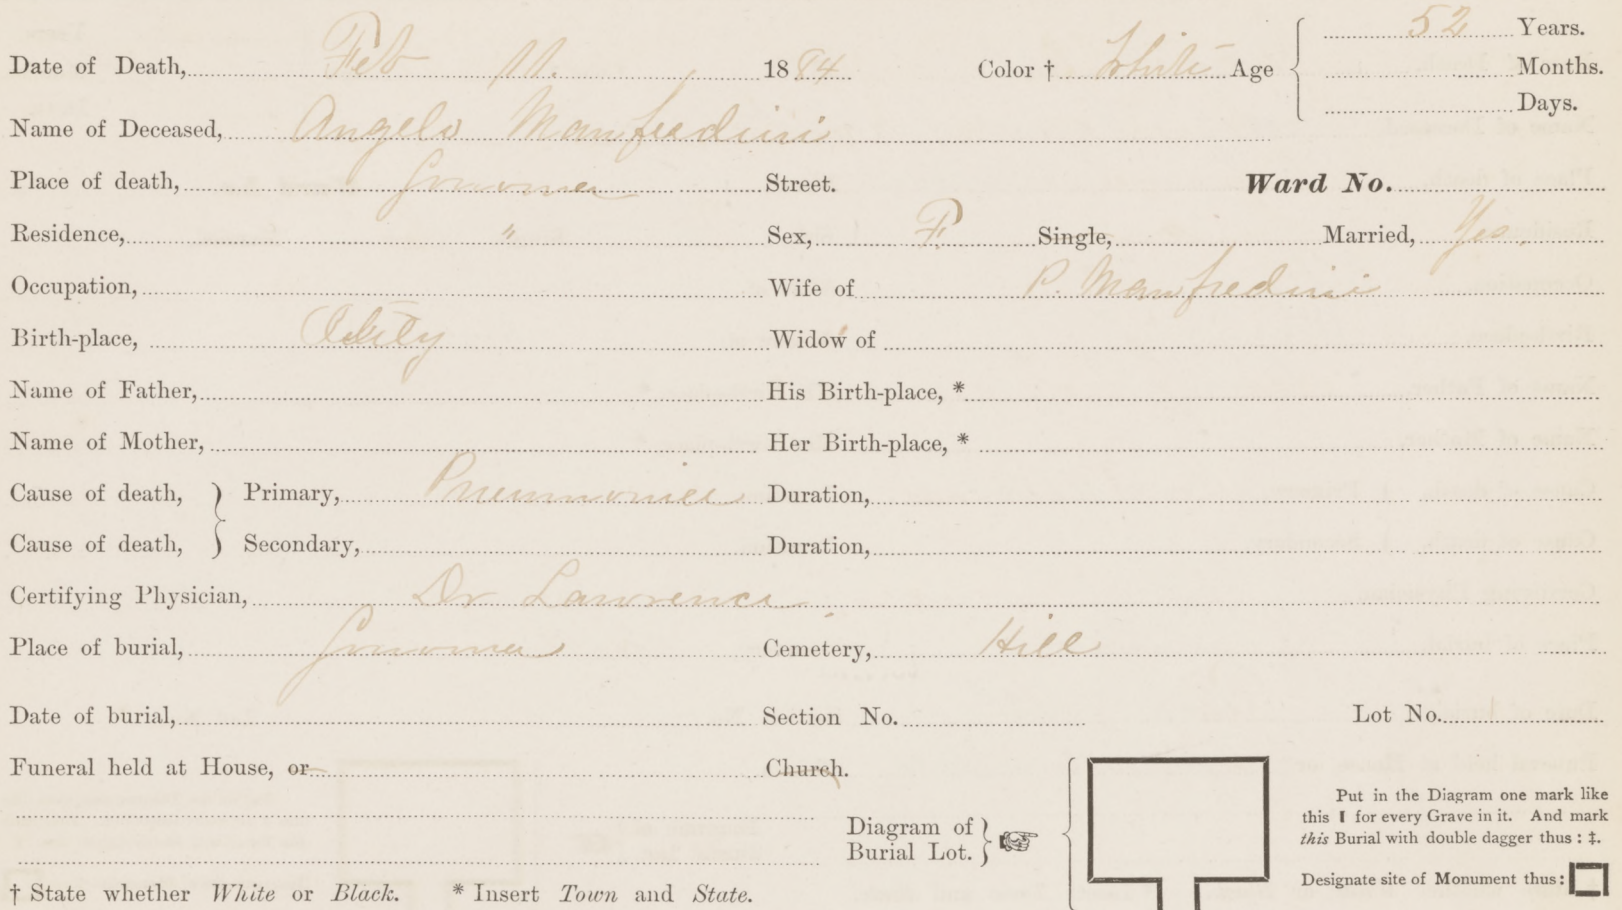 Date of Death, Feb 11. 1894 Color † White Age 52 Years.
Months.
Days.
Name of Deceased, Angelo Manfredini
Place of death, Sonoma Street. Ward No.
Residence, " Sex, F. Single, Married, Yes.
Occupation, Wife of P. Manfredini
Birth-place, Widow of
Name of Father, His Birth-place, *
Name of Mother, Her Birth-place, *
Cause of death, } Primary, Pneumonia Duration,
Cause of death, } Secondary, Duration,
Certifying Physician, Dr Lawrence
Place of burial, Sonoma Cemetery, Hill
Date of burial, Section No. Lot No.
Funeral held at House, or Church.
Diagram of
Burial Lot. }
Put in the Diagram one mark like
this ❙ for every Grave in it. And mark
this Burial with double dagger thus : ‡.
Designate site of Monument thus:
† State whether White or Black. * Insert Town and State.